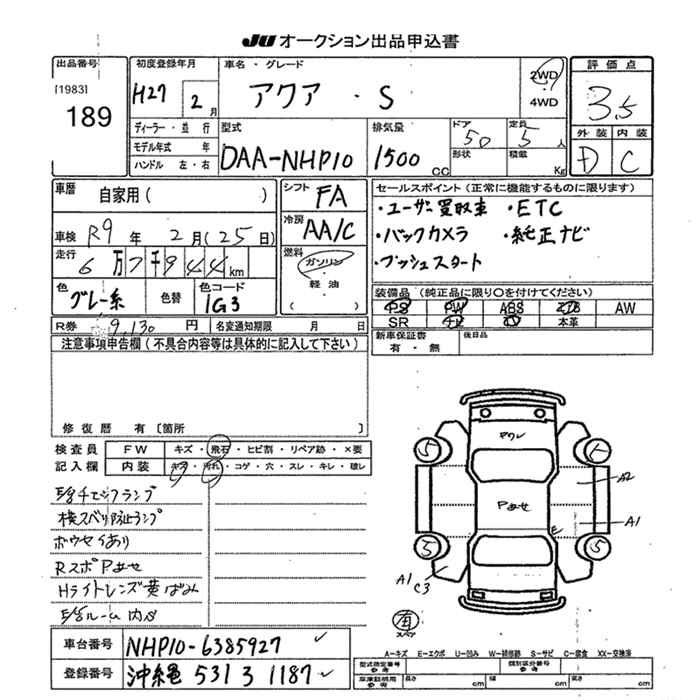 JU オークション出品申込書
出品番号
[1983]
189
初度登録年月
H27 2月
車名・グレード
アクア・S
2WD
・
4WD
評価点
3.5
外装 内装
D C
ディーラー・並行
モデル年式 年
ハンドル 左・右
型式
DAA-NHP10
排気量
1500 cc
ドア
5D
形状
定員
5人
積載
Kg
車歴
自家用( )
車検 R9年 2月(25日)
走行 6万7千944km
色
グレー系
色替
色コード
1G3
シフト FA
冷房 AA/C
燃料
ガソリン
・
軽油
セールスポイント(正常に機能するものに限ります)
・ユーザー買取車 ・ETC
・バックカメラ ・純正ナビ
・プッシュスタート
装備品(純正品に限り○を付けてください)
PS PW ABS エアB AW
SR ナビ TV 本革
R券 9,130円
名変通知期限 月 日
新車保証書
有・無
後日品
注意事項申告欄(不具合内容等は具体的に記入して下さい)
修復歴 有〔箇所 〕
検査員
記入欄
FW キズ・飛石・ヒビ割・リペア跡・×要
内装 キズ・汚れ・コゲ・穴・スレ・キレ・破レ
横スベリ防止ランプ
RスポPあせ
Hライトレンズ黄ばみ
Pあせ
A2
A1
E
A1
C3
5
5
5
有
スペア
A=キズ E=エクボ U=凹み W=補修跡 S=サビ C=腐食 XX=交換済
車台番号 NHP10-6385927
登録番号 沖縄 531 3 1187
型式指定番号
参考
類別区分番号
参考
車庫証明用
参考
長さ cm
幅 cm
高さ cm